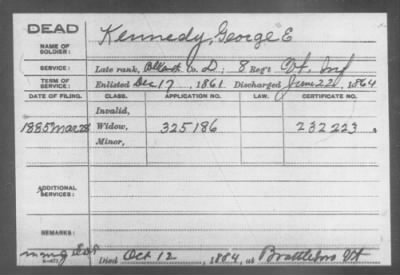 DEAD
NAME OF SOLDIER: Kennedy, George E
SERVICE: Late rank, Co. D, 8 Reg't Vt. Inf
TERM OF SERVICE: Enlisted Dec 17, 1861 Discharged June 22, 1864
DATE OF FILING. CLASS. APPLICATION NO. LAW. CERTIFICATE NO.
Invalid,
1885 Mar 28 Widow, 325186 232223.
Minor,
ADDITIONAL SERVICES:
REMARKS:
Died Oct 12, 1884, at Brattleboro Vt